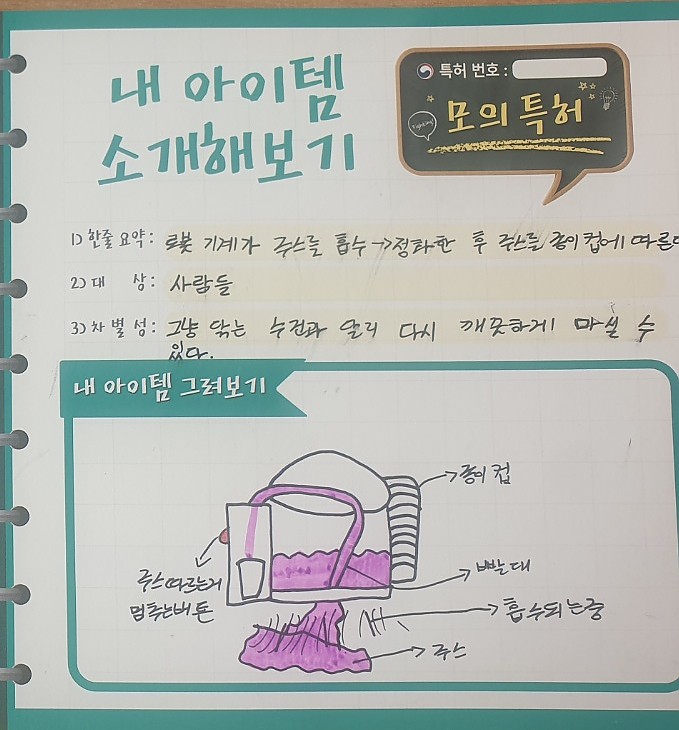 내 아이템
소개해보기
특허 번호 :
모의 특허
1) 한줄 요약: 로봇 기계가 주스를 흡수→정화한 후 주스를 종이컵에 따른다
2) 대 상: 사람들
3) 차별성: 그냥 닦는 수건과 달리 다시 깨끗하게 마실 수
있다.
내 아이템 그려보기
종이컵
주스따르는거
멈추는버튼
빨대
흡수되는중
주스